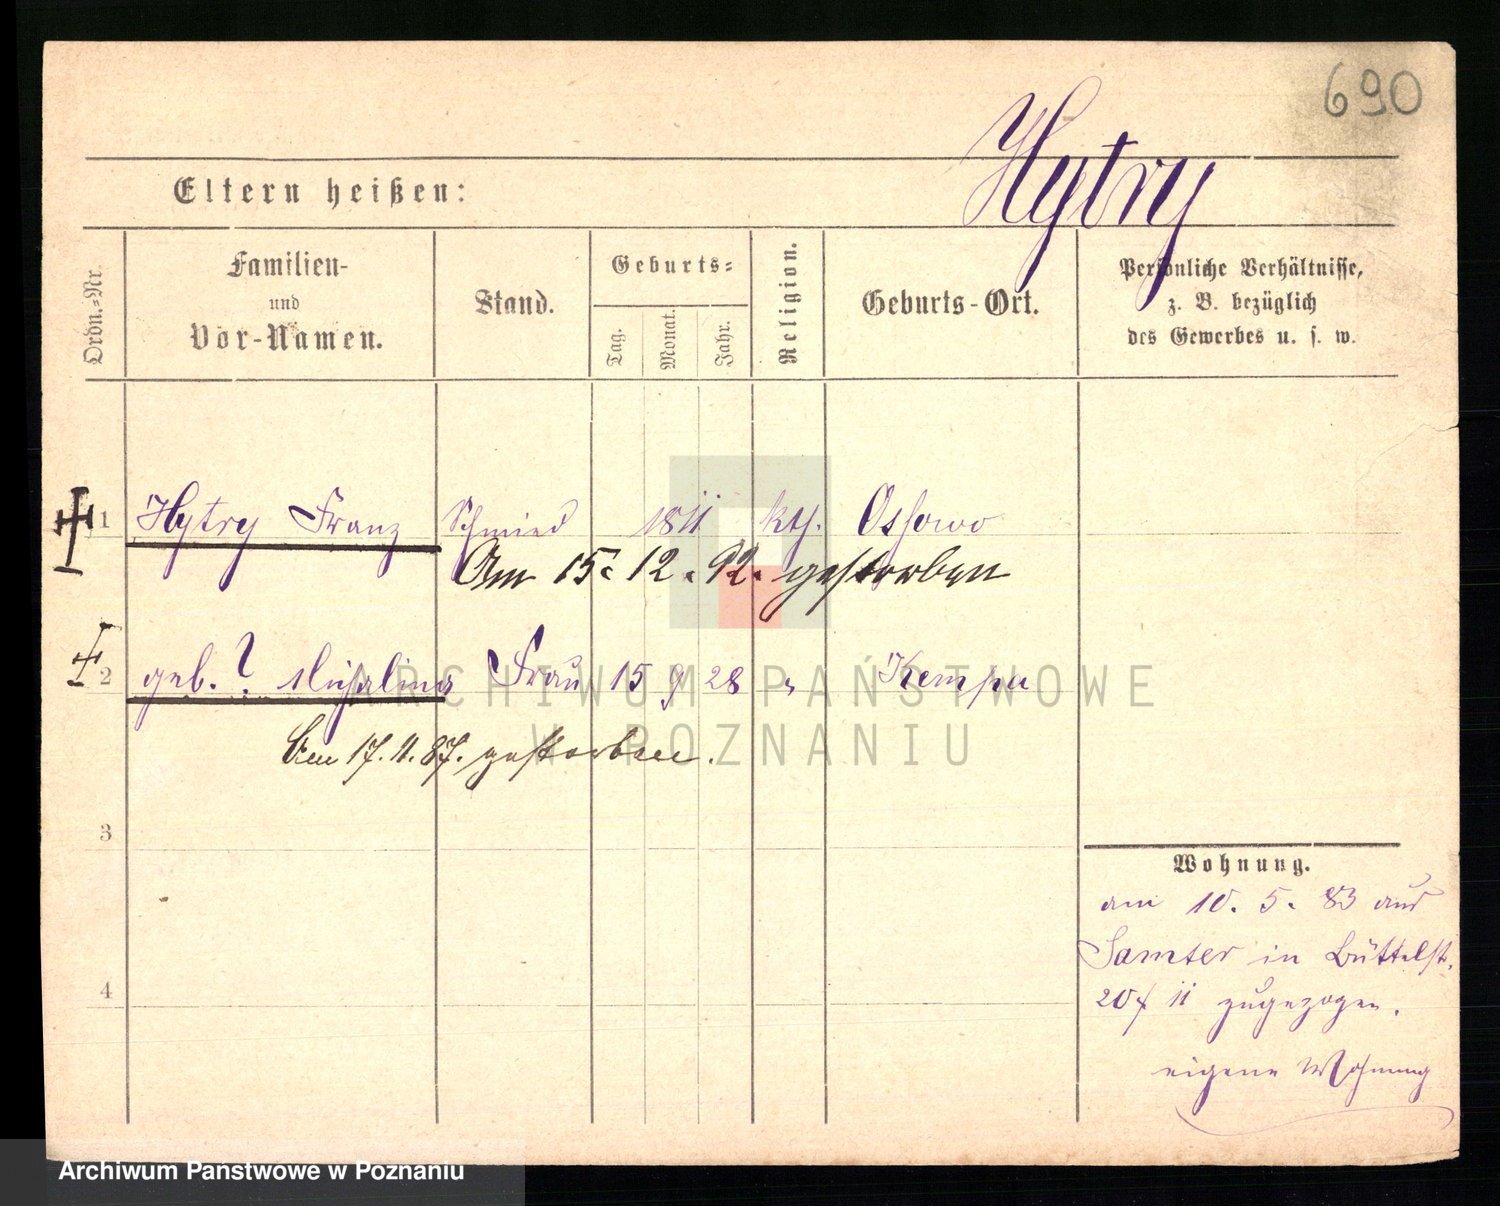 690
Hytry
Eltern heißen:
Ordn.-Nr.
Familien-
und
Vor-Namen.
Stand.
Geburts-
Tag.
Monat.
Jahr.
Religion.
Geburts-Ort.
Persönliche Verhältnisse,
z. B. bezüglich
des Gewerbes u. s. w.
1 Hytry Franz Schmied 1811 kth. Ossowo
Am 15. 12. 92. gestorben
2 geb. ? Michalina Frau 15 9 28 " Kempa
Am 17. 11. 87. gestorben.
3
4
Wohnung.
am 10. 5. 83 aus
Samter in Büttelst.
20/ 11 zugezogen.
eigene Wohnung
ARCHIWUM PAŃSTWOWE
W POZNANIU
Archiwum Państwowe w Poznaniu